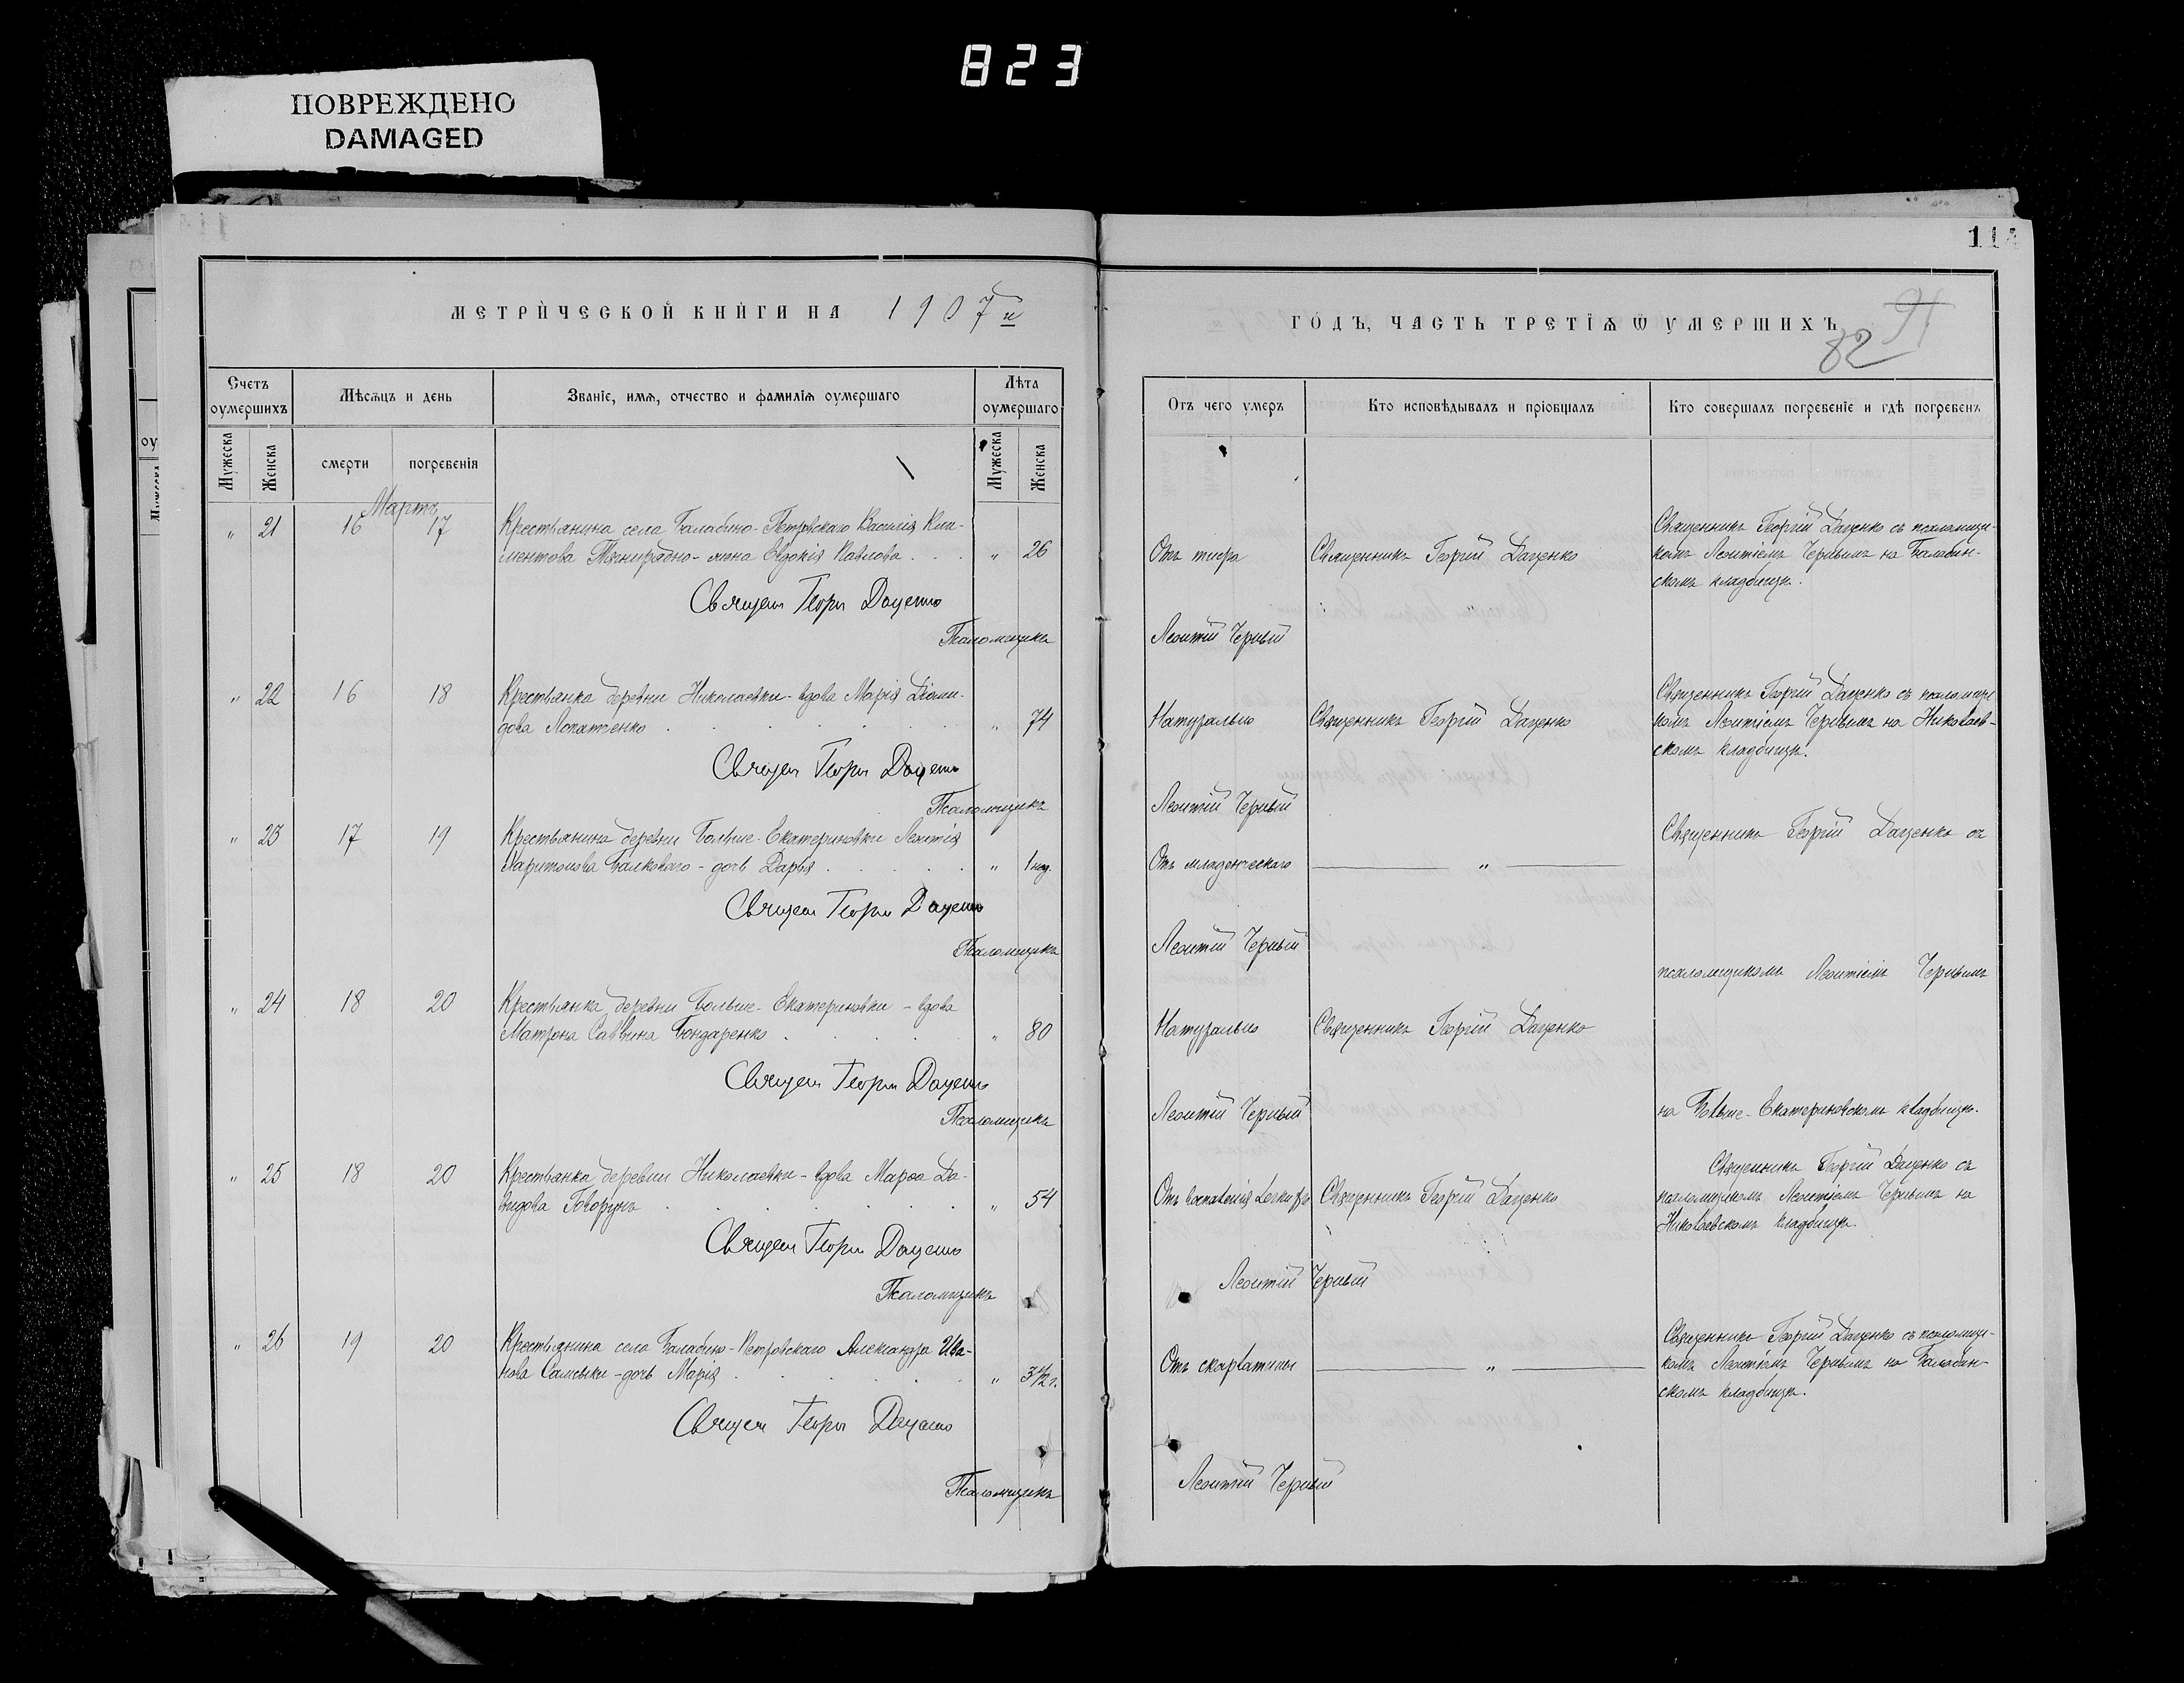 823
ПОВРЕЖДЕНО
DAMAGED
МЕТРИЧЕСКОЙ КНИГИ НА 1907й
Счетъ оумершихъ
Мѣсяцъ и день
Званіе, имя, отчество и фамилія оумершаго
Лѣта оумершаго
Мужеска
Женска
смерти
погребенія
Мужеска
Женска
Мартъ
" 21 16 17 Крестьянина села Балабино-Петровскаго Василія Кли-
ментова жена Евдокія Павлова . . . " 26
Священ Георгі Даценко
Псаломщикъ
" 22 16 18 Крестьянка деревни Николаевки - вдова Марія Діоми-
дова Лопатченко . . . " 74
Священ Георгі Даценко
Псаломщикъ
" 23 17 19 Крестьянина деревни Больше-Екатериновки Леонтія
Харитонова Балковаго - дочь Дарья . . . " 1 нед.
Священ Георгі Даценко
Псаломщикъ
" 24 18 20 Крестьянка деревни Больше-Екатериновки - вдова
Матрона Саввина Бондаренко . . . " 80
Священ Георгі Даценко
Псаломщикъ
" 25 18 20 Крестьянка деревни Николаевки - вдова Марѳа Да-
видова Говорунъ . . . " 54
Священ Георгі Даценко
Псаломщикъ
" 26 19 20 Крестьянина села Балабино-Петровскаго Александра Ива-
нова - дочь Марія . . . " 3 1/2 г.
Священ Георгі Даценко
Псаломщикъ
114
ГОДЪ, ЧАСТЬ ТРЕТІЯ Ѿ УМЕРШИХЪ
91
82
Отъ чего умеръ
Кто исповѣдывалъ и пріобщалъ
Кто совершалъ погребеніе и гдѣ погребенъ
Отъ тифа
Священникъ Георгій Даценко
Священникъ Георгій Даценко съ псаломщи-
комъ Леонтіемъ Чернымъ на Балабин-
скомъ кладбищѣ.
Леонтій Черный
Натурально
Священникъ Георгій Даценко
Священникъ Георгій Даценко съ псаломщи
комъ Леонтіемъ Чернымъ на Николаев-
скомъ кладбищѣ.
Леонтій Черный
Отъ младенческаго
"
Священникъ Георгій Даценко съ
Леонтій Черный
псаломщикомъ Леонтіемъ Чернымъ
Натурально
Священникъ Георгій Даценко
Леонтій Черный
на Больше-Екатериновскомъ кладбищѣ.
Отъ воспаленія легкихъ
Священникъ Георгій Даценко
Священникъ Георгій Даценко съ
псаломщикомъ Леонтіемъ Чернымъ на
Николаевскомъ кладбищѣ.
Леонтій Черный
Отъ скарлатины
"
Священникъ Георгій Даценко съ псаломщи-
комъ Леонтіемъ Чернымъ на Балабин-
скомъ кладбищѣ.
Леонтій Черный